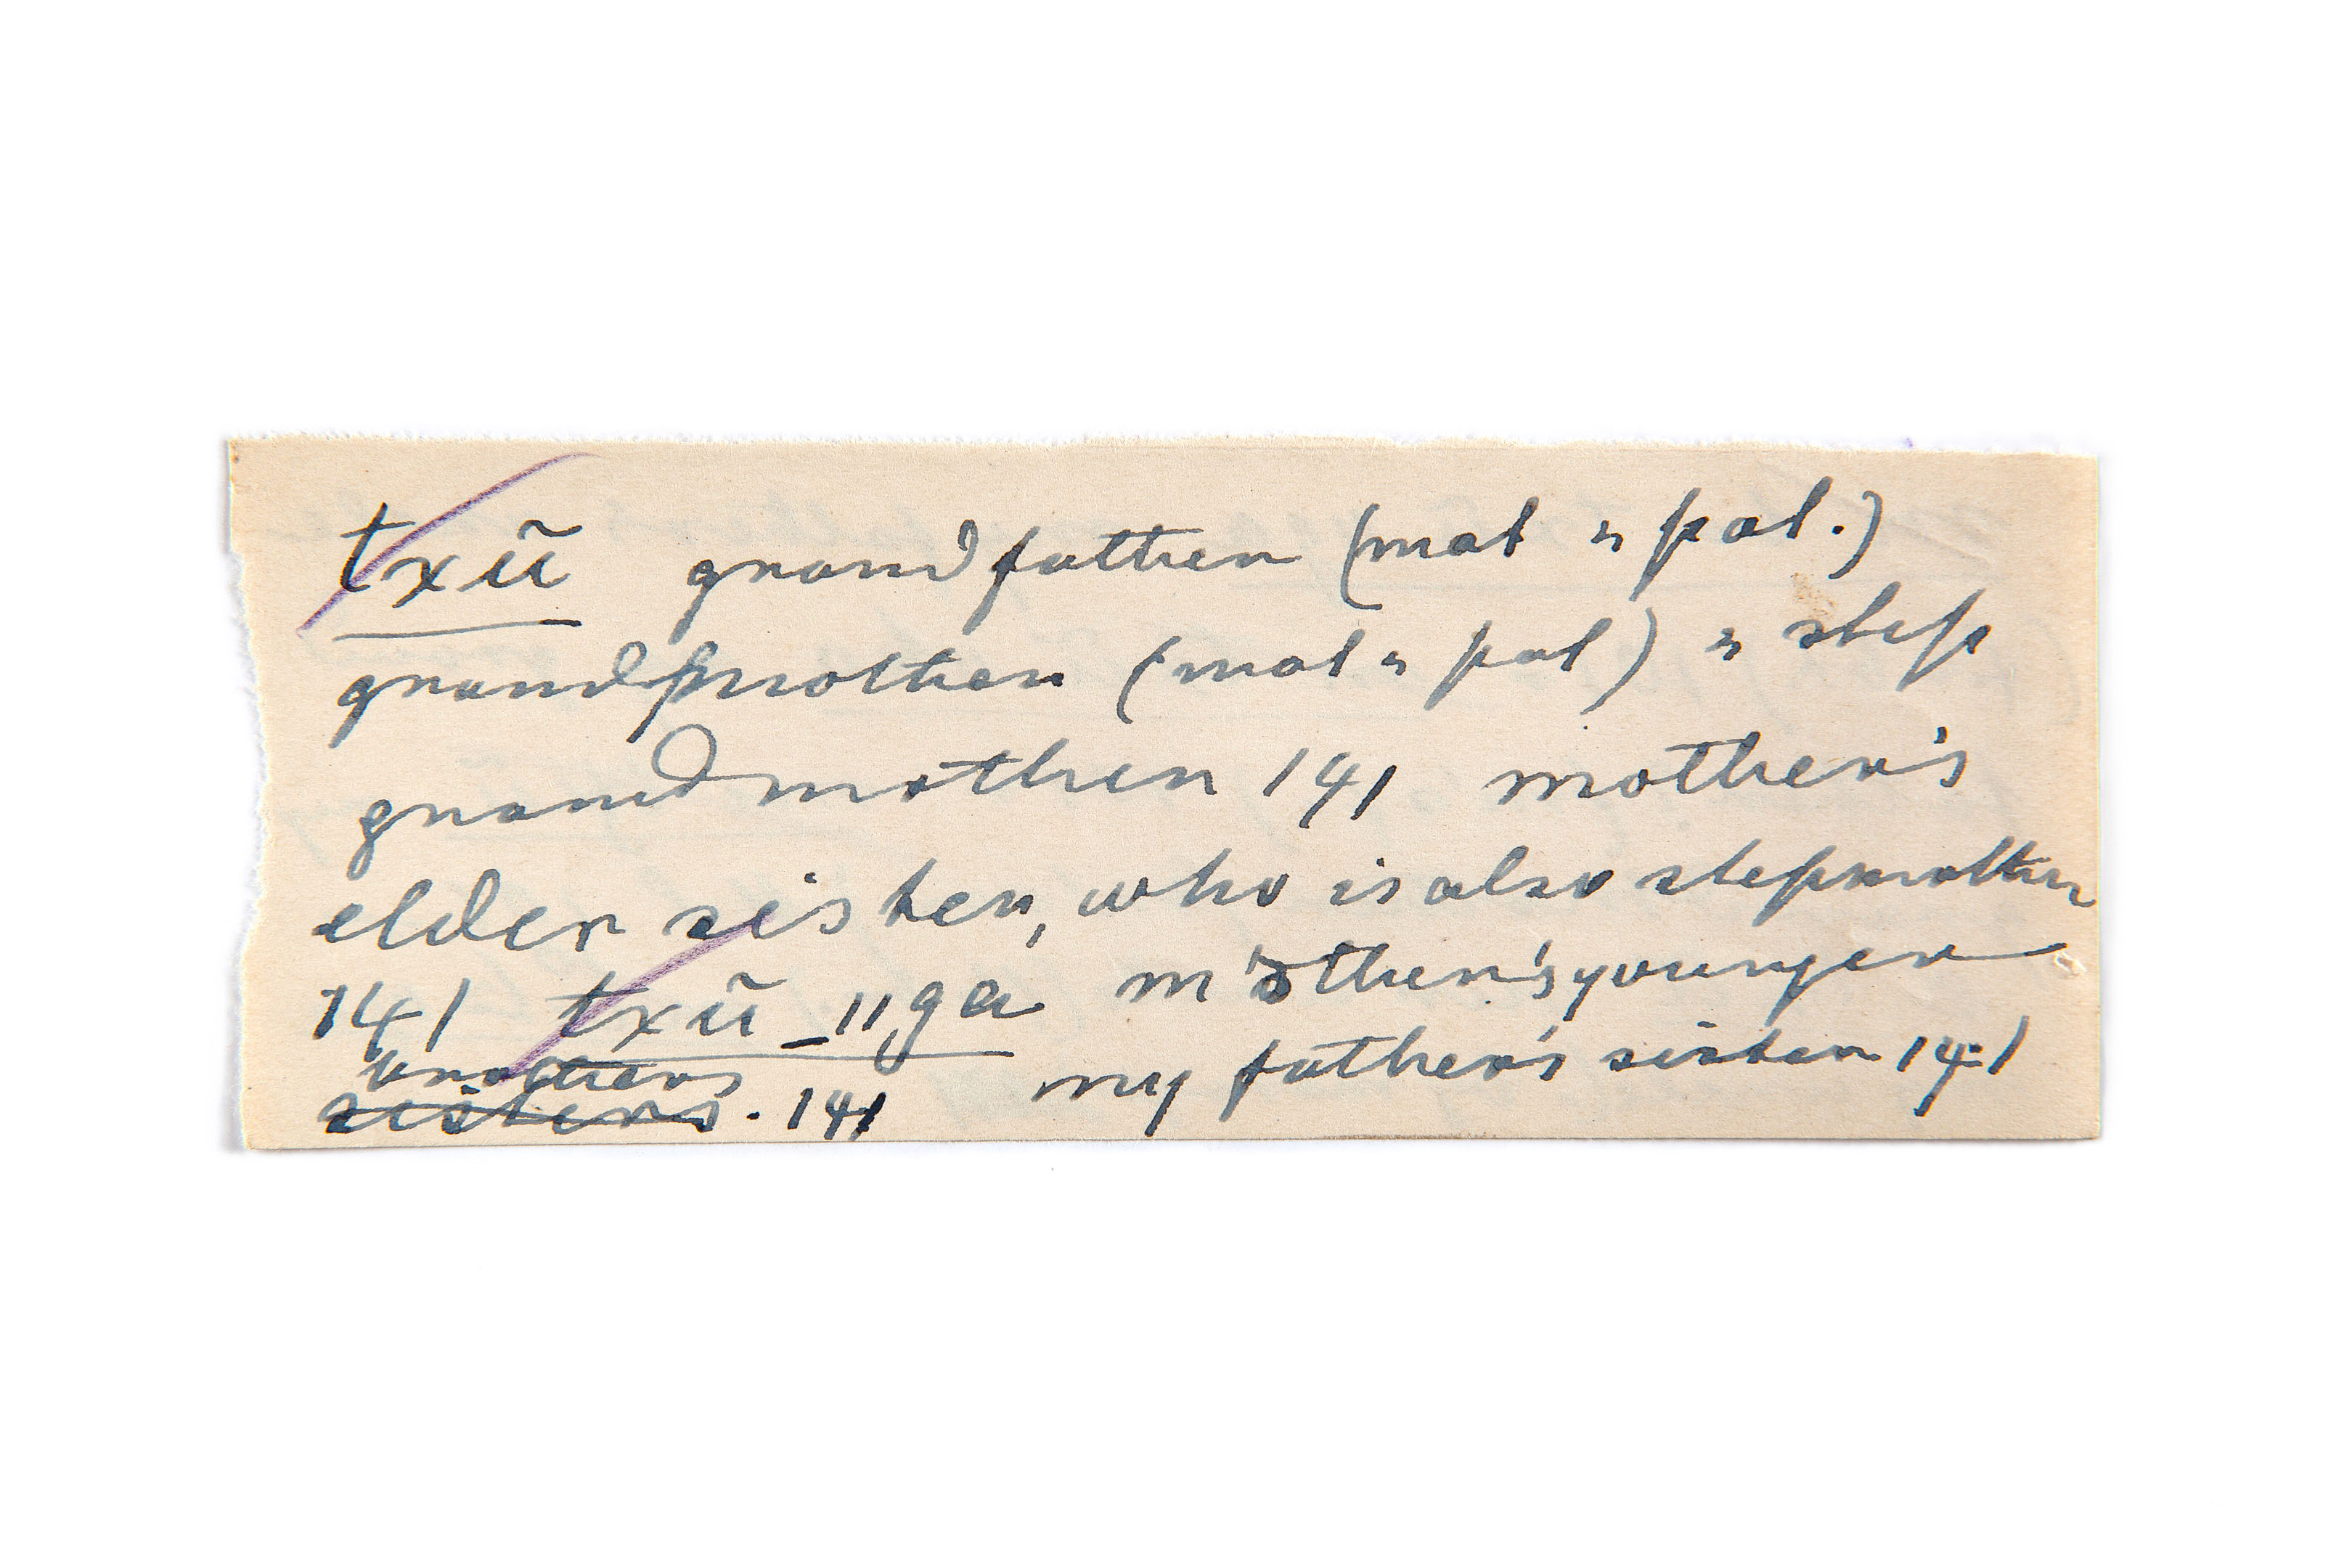 txũ grandfather (mat & pat.)
grandmother (mat & pat) & step
grandmother 141 mother's
elder sister, who is also stepmother
141 txũ-11ga mother's younger
brothers
sisters. 141 my father's sister 141